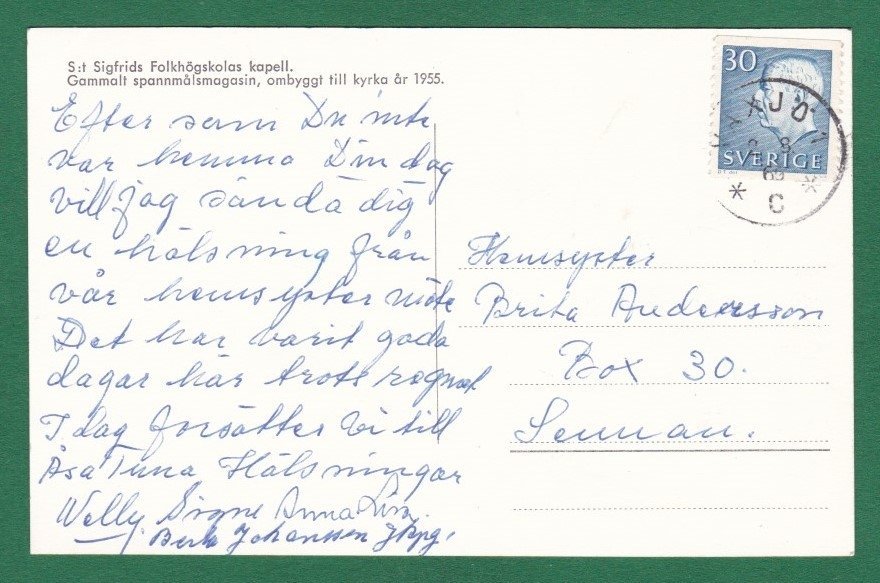 S:t Sigfrids Folkhögskolas kapell.
Gammalt spannmålsmagasin, ombyggt till kyrka år 1955.
Efter som Du inte
var hemma Din dag
vill jag sända dig
en hälsning från
vår hemsyster möte
Det har varit goda
dagar här trots regnet
I dag forsätter Vi till
Åsa Tuna Hälsningar
Welly Signe Anna Lisa
Berta Johansson Jkpg.
30
SVERIGE
VÄXJÖ
C
Hemsyster
Brita Andersson
Box 30.
Sennan.